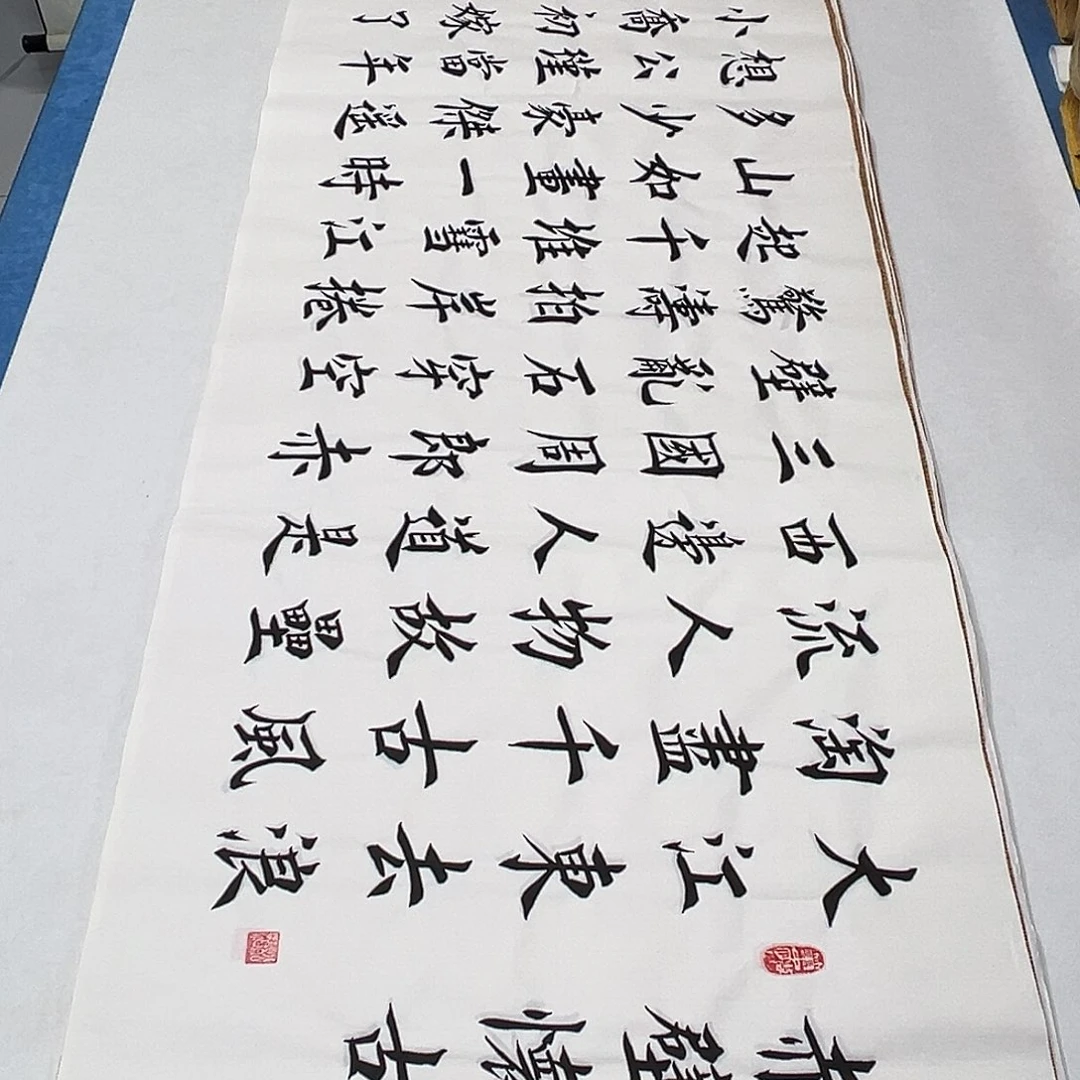 赤壁懷古
大江東去浪
淘盡千古風
流人物故壘
西邊人道是
三國周郎赤
壁亂石穿空
驚濤拍岸捲
起千堆雪江
山如畫一時
多少豪傑遥
想公瑾當年
小喬初嫁了